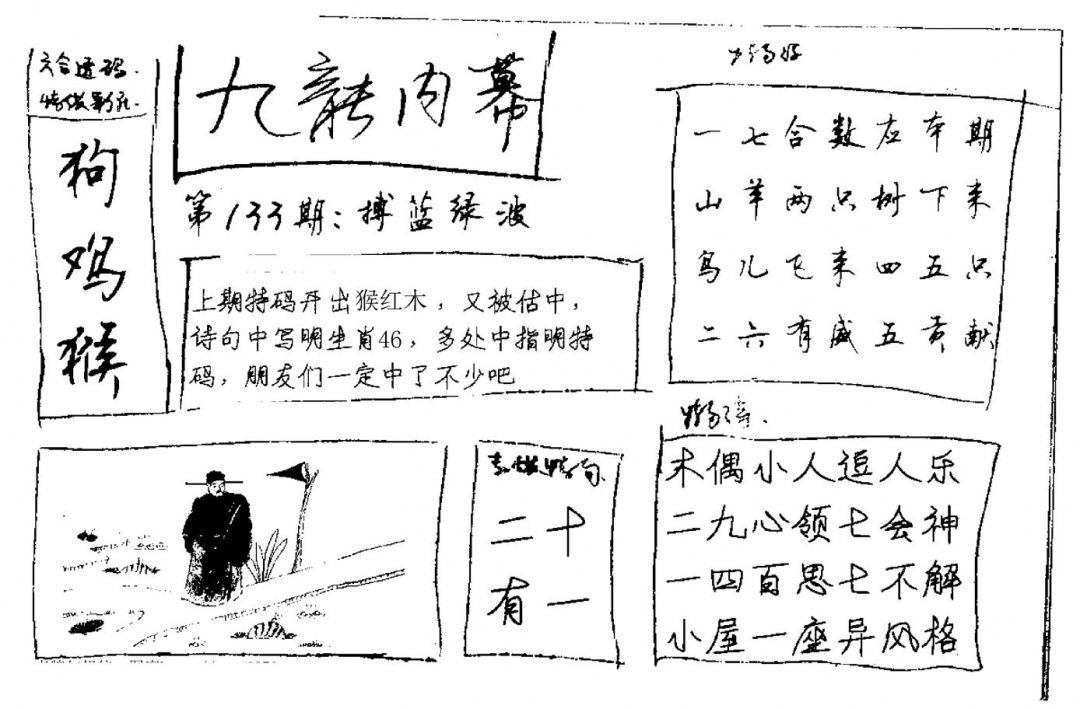 六合透码
狗
鸡
猴
九龙内幕
第133期：搏蓝绿波
上期特码开出猴红木，又被估中，
诗句中写明生肖46，多处中指明特
码，朋友们一定中了不少吧
一七合数应本期
山羊两只树下来
鸟儿飞来四五只
二六有盛五贡献
二十
有一
木偶小人逗人乐
二九心领七会神
一四百思七不解
小屋一座异风格